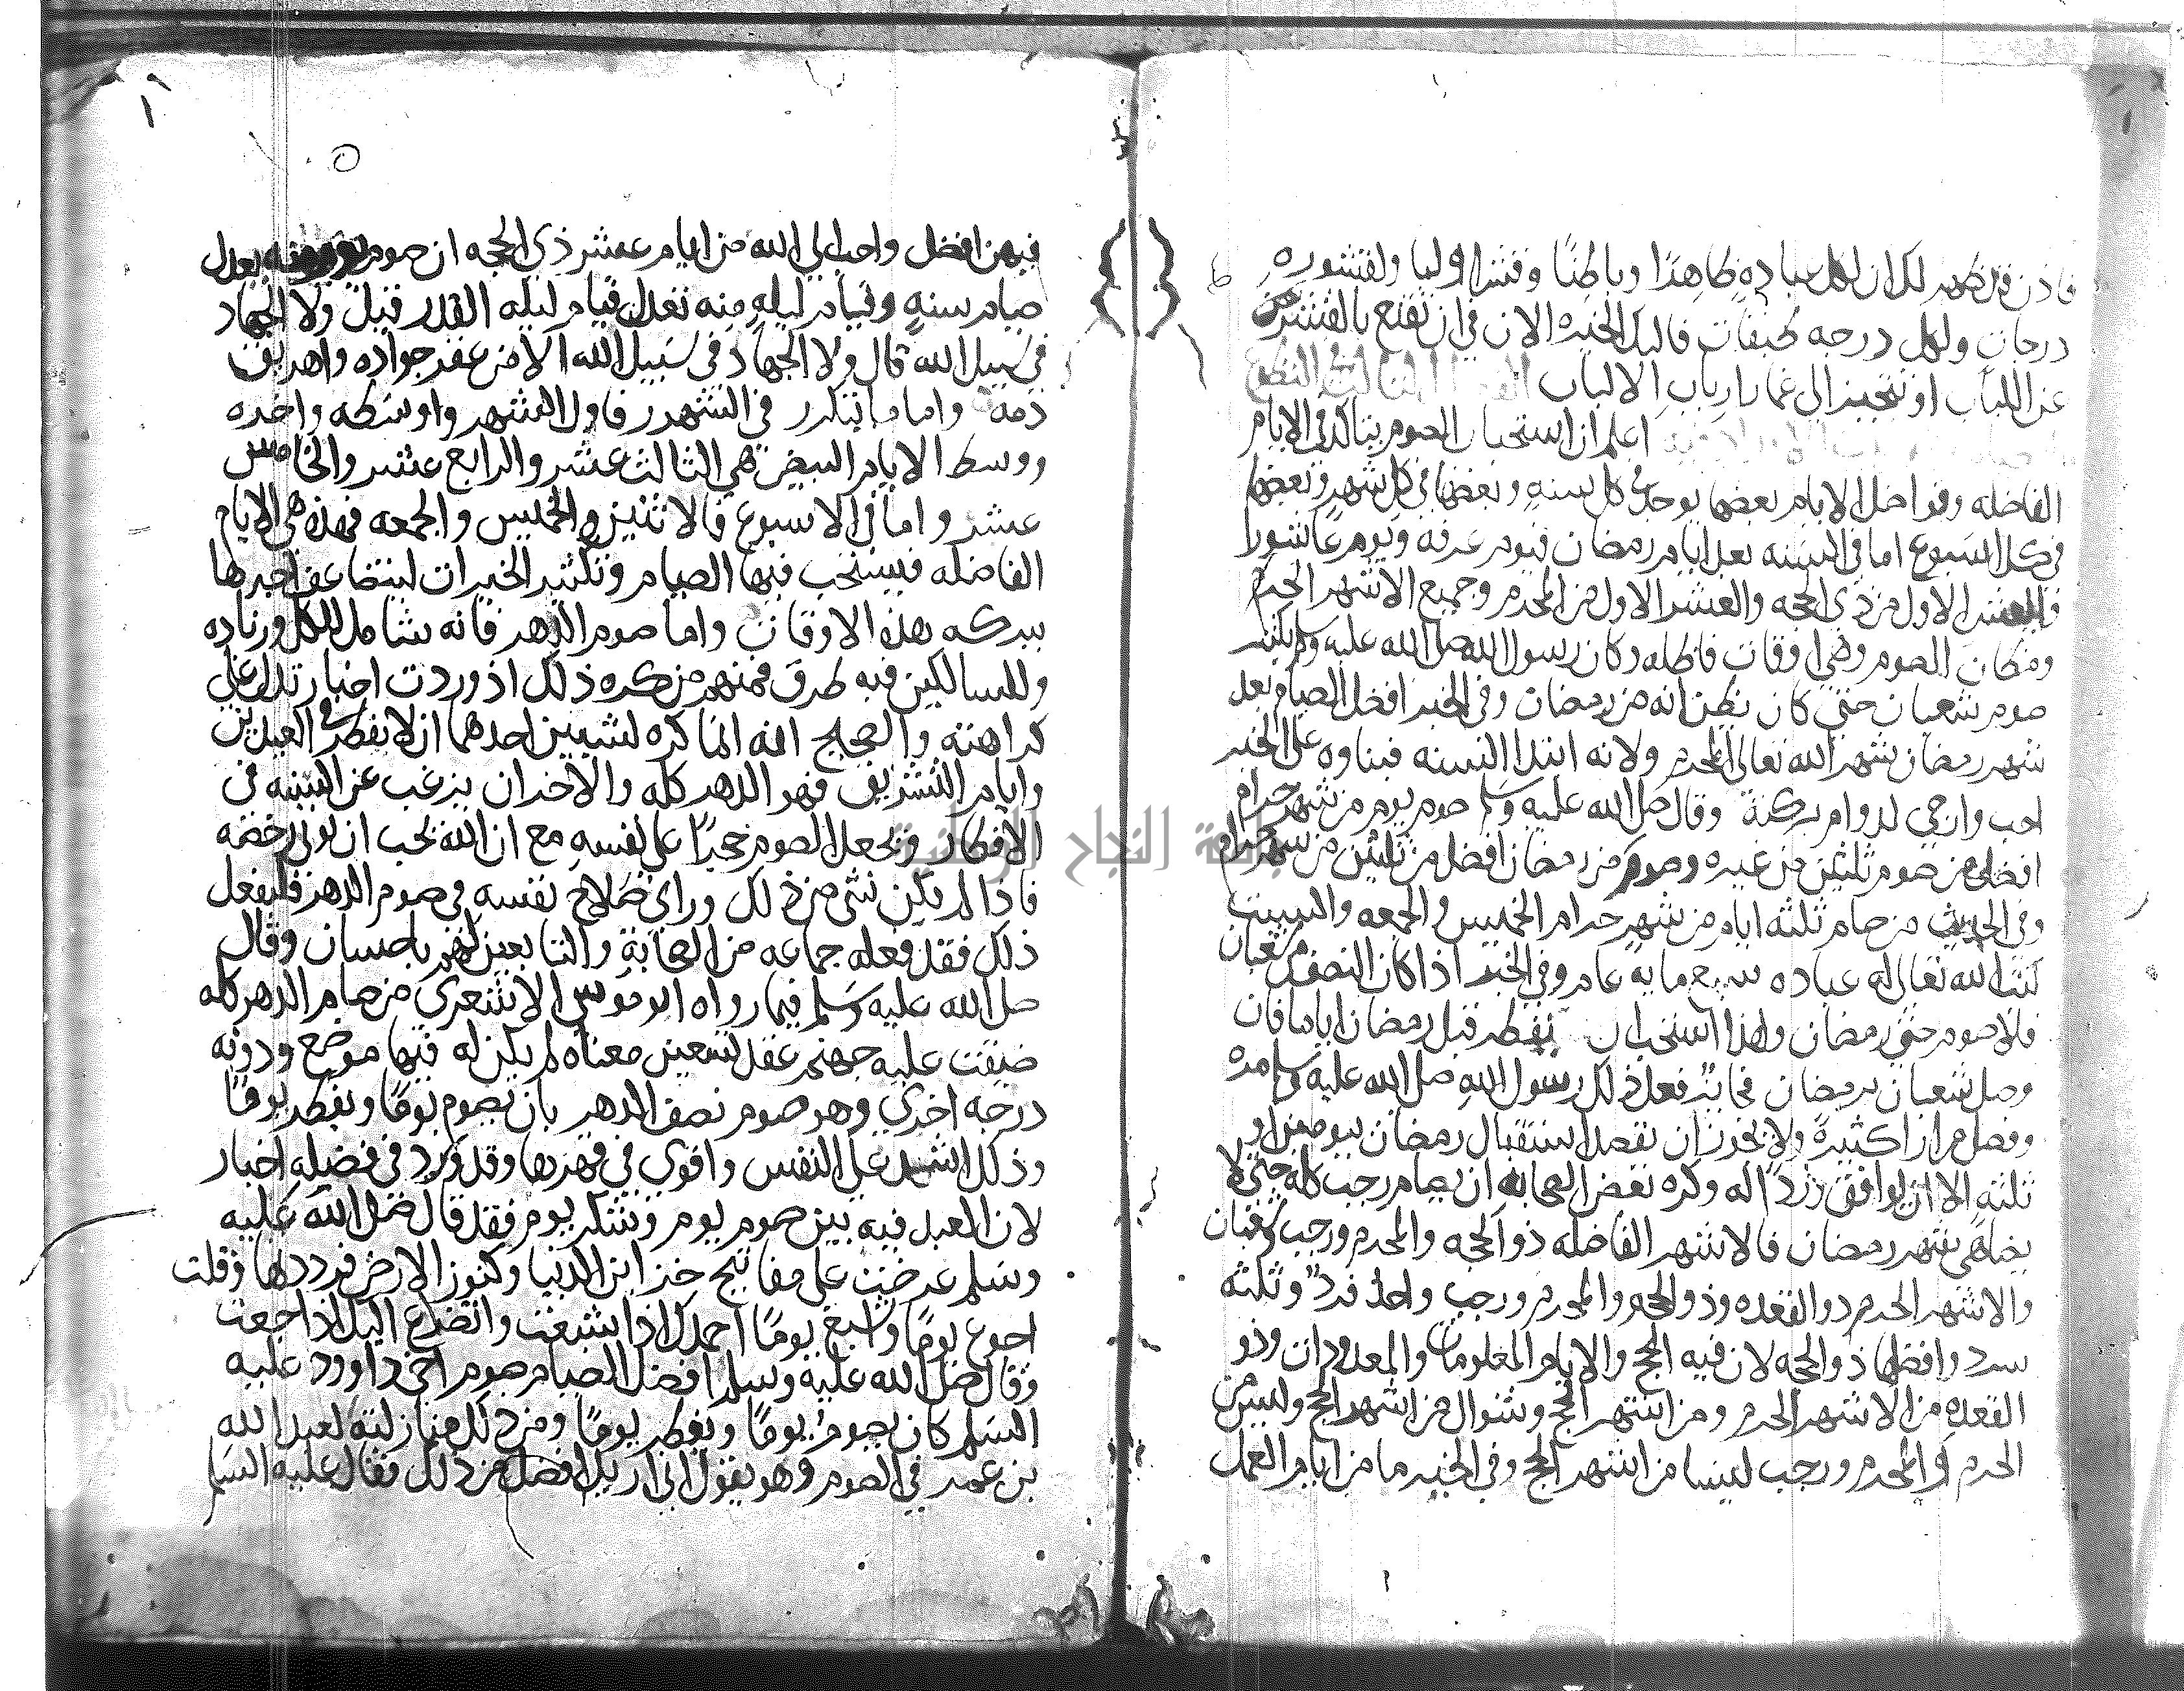 فاذن قد ظهر لك ان لكل عبادة ظاهرًا وباطنًا وقشرا ولبا ولقشوره
درجات ولكل درجه طبقات فاليك الخيره الان في ان تقنع بالقشر عن
عن اللباب او تتحيز الى غمار ارباب الالباب الفصل الثالث في التطوع
اعلم ان استحباب الصوم يتاكد في الايام
الفاضله وفواضل الايام بعضها يوجد في كل سنه وبعضها في كل شهر وبعضها
في كل اسبوع اما في السنه بعد ايام رمضان فيوم عرفه ويوم عاشورا
فالعشر الاول من ذي الحجه والعشر الاول من المحرم وجميع الاشهر الحرم
ومظان الصوم وهي اوقات فاضله وكان رسول الله صلى الله عليه وسلم يكثر
صوم شعبان حتى كان يظن انه من رمضان وفي الخبر افضل الصيام بعد
شهر رمضان شهر الله تعالى المحرم ولانه ابتدا السنه فبناوه على الخير
احب وارجي لدوام بركتة وقال صلى الله عليه وسلم صوم يوم من شهر حرام
افضل من صوم ثلثين من غيره وصوم من رمضان افضل من ثلثين من شهر حرام
وفي الحديث من صام ثلثه ايام من شهر حرام الخميس والجمعه والسبت
كتب الله تعالى له عباده سبع مايه عام وفي الخبر اذا كان النصف من شعبان
فلا صوم حتى رمضان ولهذا استحب ان يفطر قبل رمضان اياما فان
وصل شعبان برمضان فجايز فعل ذلك رسول الله صلى الله عليه وسلم مره
وفصل مرارا كثيرة ولا يجوز ان يقصد استقبال رمضان بيومين او
ثلثه الا ان يوافق وردا له وكره بعض الصحابه ان يصام رجب كله حتى لا
يضاهى بشهر رمضان فالاشهر الفاضله ذو الحجه والمحرم ورجب وشعبان
والاشهر الحرم ذو القعده وذو الحجه والمحرم ورجب واحد فرد وثلثه
سرد وافضلها ذو الحجه لان فيه الحج والايام المعلومات والمعدودات وذو
القعده من الاشهر الحرم ومن اشهر الحج وشوال من اشهر الحج وليس من
الحرم والمحرم ورجب ليسا من اشهر الحج وفي الخبر ما من ايام العمل
فيهن افضل واحب الى الله من ايام عشر ذي الحجه ان صوم يوم منه يعدل
صيام سنه وقيام ليله منه تعدل قيام ليله القدر قيل ولا الجهاد
في سبيل الله قال ولا الجهاد في سبيل الله الا من عقر جواده واهريق
دمه واما ما يتكرر في الشهر فاول الشهر واوسطه واخره
ووسط الايام البيض هي الثالث عشر والرابع عشر والخامس
عشر واما في الاسبوع فالاثنين والخميس والجمعه فهذه هي الايام
الفاضله فيستحب فيها الصيام وتكثير الخيرات ليتضاعف اجرها
ببركه هذه الاوقات واما صوم الدهر فانه شامل للكل وزياده
وللسالكين فيه طرق فمنهم من كره ذلك اذ وردت اخبار تدل على
كراهته والصحيح انه انما كره لشيين احدهما ان لا يفطر في العيدين
وايام التشريق فهو الدهر كله والاخر ان يرغب عن السنه في
الافطار ويجعل الصوم حجرًا على نفسه مع ان الله يحب ان توتى رخصه
فاذا لم يكن شى من ذلك وراى صلاح نفسه في صوم الدهر فليفعل
ذلك فقد فعله جماعه من الصحابة والتابعين لهم باحسان وقال
صلى الله عليه وسلم فيما رواه ابو موسى الاشعري من صام الدهر كله
ضيقت عليه جهنم عقد تسعين معناه لم يكن له فيها موضع ودونه
درجه اخرى وهو صوم نصف الدهر بان يصوم يومًا ويفطر يومًا
وذلك اشد على النفس واقوى في قهرها وقد ورد في فضيله اخبار
لان العبد فيه بين صوم يوم وشكر يوم فقد قال صلى الله عليه
وسلم عرضت على مفاتيح خزاين الدنيا وكنوز الارض فرددها وقلت
اجوع يومًا واشبع يومًا احمدك اذا شبعت واتضرع اليك اذا جعت
وقال صلى الله عليه وسلم افضل الصيام صوم اخي داوود عليه
السلم كان يصوم يومًا ويفطر يومًا ومن ذلك منازلته لعبد الله
بن عمر في الصوم وهو يقول اني اريد افضل من ذلك فقال عليه السلم
جامعة النجاح الوطنية